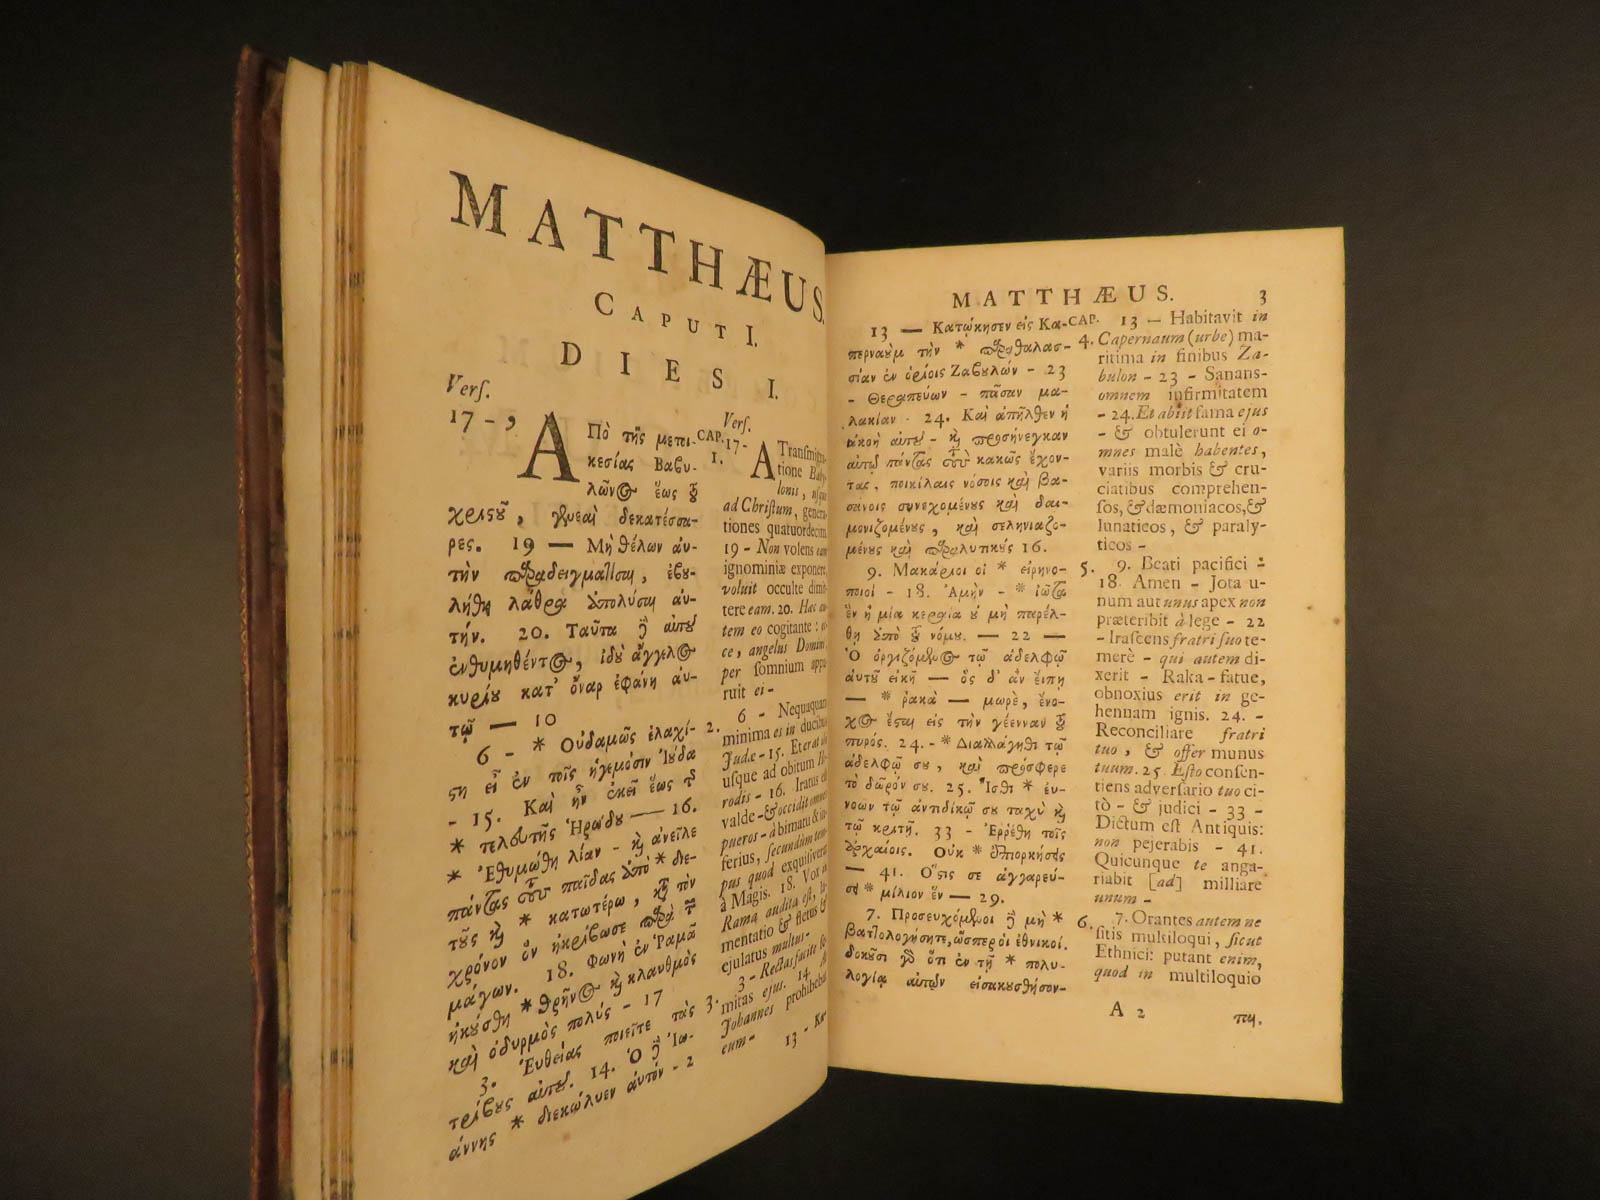 MATTHÆUS.
CAPUT I.
DIES I.
Verſ.
17 -,
ΑΠὸ τῆς μετοι-
κεσίας Βαβυ-
λῶν@ ἕως ϗ
χριςȣ͂, γενεαὶ δεκατέσσα-
ρες. 19 — Μὴ θέλων αὐ-
τὴν παραδειγματίσαι, ἐβȣ-
λήθη λάθρα ἀπολύσαι αὐ-
τήν. 20. Ταῦτα δὲ αὐτȣ͂
ἐνθυμηθέντος, ἰδȣ̀ ἄγγελος
κυρίȣ κατ' ὄναρ ἐφάνη αὐ-
τῷ — 10
6 - * Οὐδαμῶς ἐλαχί-
ςη εἶ ἐν τοῖς ἡγεμόσιν Ἰȣ́δα
- 15. Καὶ ἦν ἐκεῖ ἕως τ͂
* τελευτῆς Ἡρώδȣ — 16.
* Ἐθυμώθη λίαν - καὶ ἀνεῖλε
πάντας τοὺς παῖδας ἀπὸ * διε-
τȣ͂ς καὶ * κατωτέρω, κτ͂ τὸν
χρόνον ὃν ἠκρίβωσε παρὰ τ͂
μάγων. 18. Φωνὴ ἐν Ῥαμᾶ
ἠκȣ́σθη * θρῆνος καὶ κλαυθμὸς
καὶ ὀδυρμὸς πολύς - 17
3. Ἐυθείας ποιεῖτε τὰς
τρίβȣς αὐτȣ͂. 14. Ὁ δὲ Ἰω-
άννης * διεκώλυεν αὐτόν - 2
CAP.
1.
2.
3.
Verſ.
17-
A Tranſmigra-
tione Baby-
lonis, uſque
ad Chriſtum, genera-
tiones quatuordecim.
19 - Non volens eam
ignominiæ exponere,
voluit occulte dimit-
tere eam. 20. Hæc au-
tem eo cogitante: ec-
ce, angelus Domini,
per ſomnium appa-
ruit ei -
6 - Nequaquam
minima es in ducibus
Judæ - 15. Et erat ibi
uſque ad obitum He-
rodis - 16. Iratus eſt
valde - & occidit omnes
pueros - à bimatu & in-
ferius, ſecundùm tem-
pus quod exquiſiverat
à Magis. 18. Vox in
Rama audita eſt, la-
mentatio & fletus &
ejulatus multus -
3 - Rectas facite ſe-
mitas ejus. 14.
Johannes prohibebat
eum -
13 - Κα-
MATTHÆUS. 3
13 — Κατῴκησεν εἰς Κα-
περναȣ̀μ τὴν * παραθαλασ-
σίαν ἐν ὁρίοις Ζαβȣλών - 23
- Θεραπεύων - πᾶσαν μα-
λακίαν - 24. Καὶ ἀπῆλθεν ἡ
ἀκοὴ αὐτȣ͂ - καὶ προσήνεγκαν
αὐτῷ πάντας τοὺς κακῶς ἔχον-
τας, ποικίλαις νόσοις καὶ βα-
σάνοις συνεχομένȣς καὶ δαι-
μονιζομένȣς, καὶ σεληνιαζο-
μένȣς καὶ παραλυτικȣ́ς 16.
9. Μακάριοι οἱ * εἰρηνο-
ποιοί - 18. Ἀμὴν - * ἰῶτα
ἓν ἢ μία κεραία ȣ̓ μὴ παρέλ-
θη ἀπὸ τȣ͂ νόμȣ. — 22 —
Ὁ ὀργιζόμενος τῷ ἀδελφῷ
αὐτȣ͂ εἰκῆ — ὃς δ' ἂν εἴπη
— * ῥακὰ — μωρὲ, ἔνο-
χος ἔςαι εἰς τὴν γέενναν τȣ͂
πυρός. 24. - * Διαλλάγηθι τῷ
ἀδελφῷ σȣ, καὶ πρόσφερε
τὸ δῶρόν σȣ. 25. Ἴσθι * εὐ-
νοων τῷ ἀντιδίκῳ σȣ ταχὺ καὶ
τῷ κριτῆ. 33 - Ἐρρέθη τοῖς
ἀρχαίοις. Οὐκ * ἐπιορκήσεις
— 41. Ὅςις σε ἀγγαρεύ-
σει * μίλιον ἓν — 29.
7. Προσευχόμενοι δὲ μὴ *
βαττολογήσητε, ὥσπερ οἱ ἐθνικοί.
δοκȣ͂σι γὰρ ὅτι ἐν τῇ * πολυ-
λογίᾳ αὑτῶν εἰσακȣσθήσον-
CAP.
4.
5.
6.
13 — Habitavit in
Capernaum (urbe) ma-
ritima in finibus Za-
bulon - 23 - Sanans-
omnem infirmitatem
- 24. Et abiit fama ejus
- & obtulerunt ei o-
mnes malè habentes,
variis morbis & cru-
ciatibus comprehen-
ſos, & dæmoniacos, &
lunaticos, & paraly-
ticos -
9. Beati pacifici -
18. Amen - Jota u-
num aut unus apex non
præteribit à lege - 22
- Iraſcens fratri ſuo te-
merè - qui autem di-
xerit - Raka - fatue,
obnoxius erit in ge-
hennam ignis. 24. -
Reconciliare fratri
tuo, & offer munus
tuum. 25 Eſto conſen-
tiens adverſario tuo ci-
tò - & judici - 33 -
Dictum eſt Antiquis:
non pejerabis - 41.
Quicunque te anga-
riabit [ad] milliare
unum -
7. Orantes autem ne
ſitis multiloqui, ſicut
Ethnici: putant enim,
quod in multiloquio
A 2 ται.